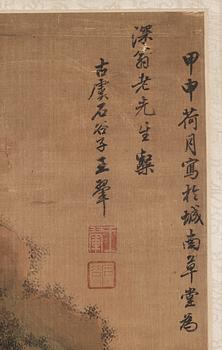 甲申荷月寫於城南草堂為
深翁老先生粲
古虞石谷子王翬